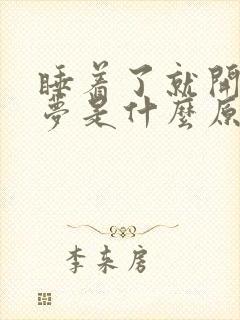 睡着了就開
夢是什麼原
李来房